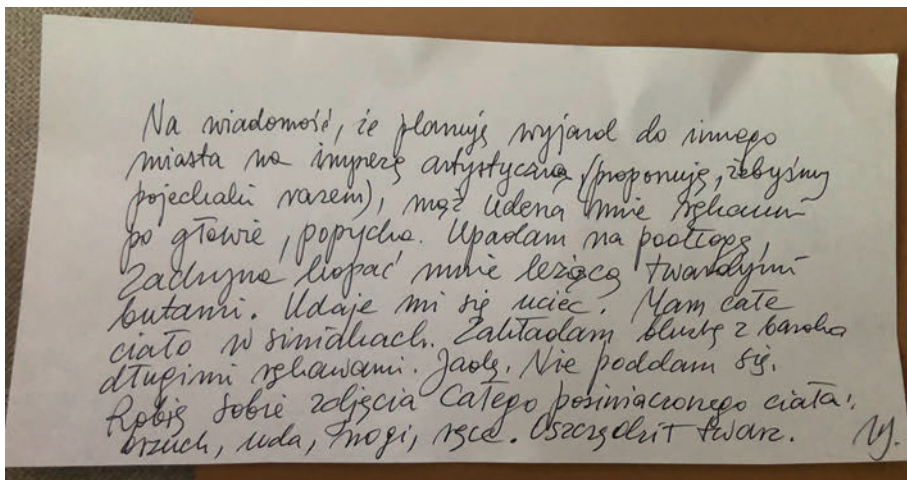 Na wiadomość, że planuję wyjazd do innego
miasta na imprezę artystyczną (proponuję, żebyśmy
pojechali razem), mąż uderza mnie rękami
po głowie, popycha. Upadam na podłogę,
Zaczyna kopać mnie leżącą twardymi
butami. Udaje mi się uciec. Mam całe
ciało w siniakach. Zakładam bluzkę z bardzo
długimi rękawami. Jadę. Nie poddam się.
Robię sobie zdjęcia całego posiniaczonego ciała:
brzuch, uda, nogi, ręce. Oszczędził twarz.